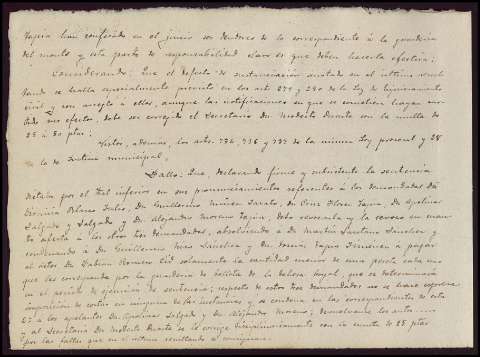 Tapia han confesado en el juicio ser deudores de lo correspondiente á la guardería
del monte y esta parte de responsabilidad claro es que deben hacerla efectiva;
Considerando: Que el defecto de sustanciación anotado en el último resul
tando se halla especialmente previsto en los arts 279 y 280 de la Ley de Enjuiciamiento
civil y con arreglo á ellos, aunque las notificaciones en que se cometieron hayan
sus efectos, debe ser corregido el Secretario Dn Modesto Duarte con la multa de
25 á 50 ptas;
Vistos, además, los arts. 734, 736 y 737 de la misma Ley procesal y 28
de la de Justicia municipal,
Fallo: Que, declarando firme y subsistente la sentencia
dictada por el Tral inferior en sus pronunciamientos referentes á los demandados Dn
Blanco Dn Guillermo Núñez Dn Cruz Tapia, Dn Apolinar
Salgado y Salgado y Dn Alejandro Moreno Tapia, debo revocarla y la revoco en cuan
to afecta á los otros tres demandados, absolviendo á Dn Martín Santiago Sánchez y
condenando á Dn Guillermo Sánchez y Dn Tapia Jimenez á pagar
al actor Dn Fabián Romero Cid solamente la cantidad menor de una peseta cada uno
que les corresponda por la guardería de bellota de la dehesa boyal, que se determinará
en el periodo de ejecución de sentencia; respecto de estos tres demandados no se hace expresa
imposición de costas en ninguna de las instancias y se condena en las correspondientes de esta
2ª á los apelantes Dn Apolinar Salgado y Dn Alejandro Moreno; devuélvanse los autos
y al Secretario Dn Modesto Duarte se le corrige disciplinariamente con la multa de 25 ptas
por las faltas que en el último resultando se consignan.